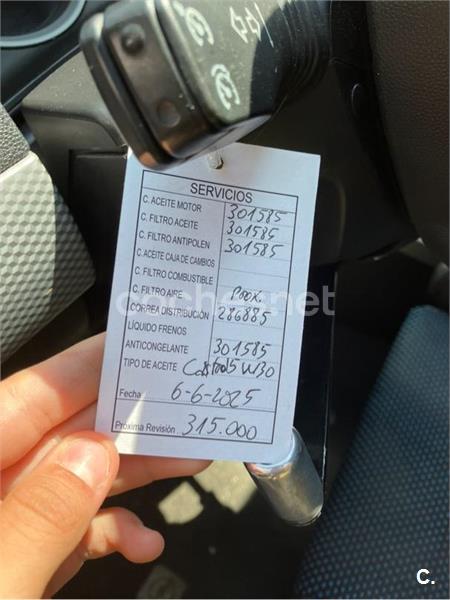 SERVICIOS
C. ACEITE MOTOR 301585
C. FILTRO ACEITE 301585
C. FILTRO ANTIPOLEN 301585
C. ACEITE CAJA DE CAMBIOS
C. FILTRO COMBUSTIBLE
C. FILTRO AIRE
CORREA DISTRIBUCIÓN 286885
LÍQUIDO FRENOS
ANTICONGELANTE 301585
TIPO DE ACEITE Castrol 5W30
Fecha 6-6-2025
Próxima Revisión 315.000
coches.net
C.